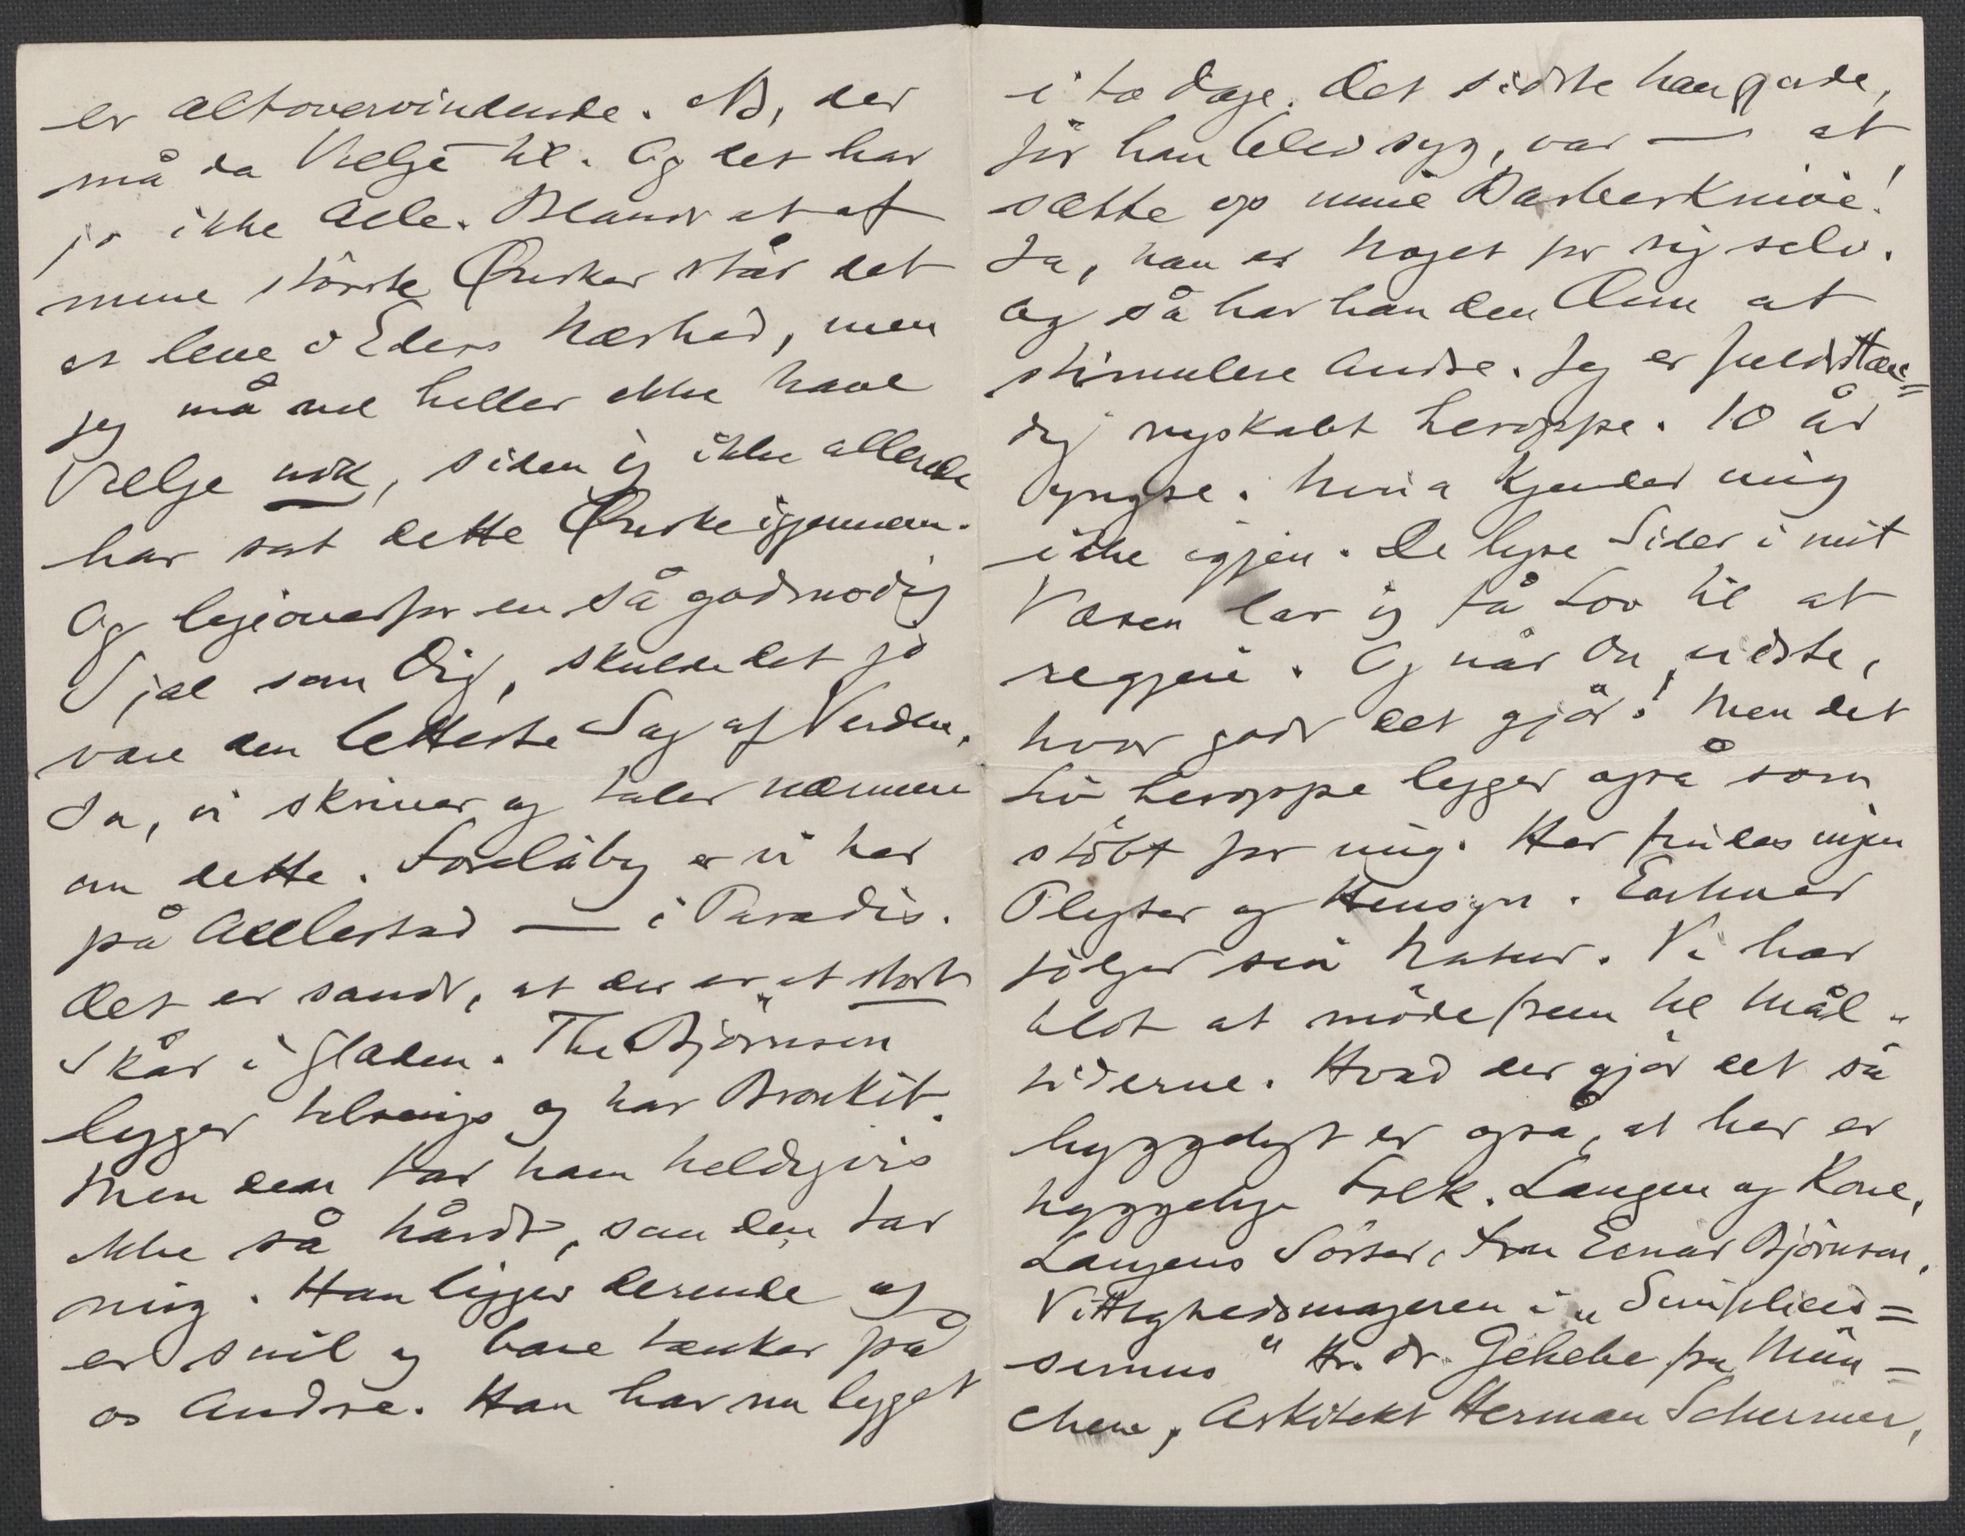 er altovervindende. NB, der
må da Vilje til. Og det har
jo ikke alle. Blandt et af
mine störste Önsker står det
at leve i Eders Nærhed, men
jeg må vel heller ikke have
Vilje nok, siden jeg ikke allerede
har sat dette Önske igjennem.
Og ligeoverfor en så godmodig
Sjæl som Dig, skulde det jo
være den letteste Sag af Verden.
Ja, vi skriver og taler nærmere
om dette. Foreløbig er vi her
på Aulestad — i Paradis.
Det er sandt, at der er et stort
Skår i Glæden. Thi Björnson
ligger tilsengs og har Bronkit.
Men den tar ham heldigvis
ikke så hårdt, som den tar
mig. Han ligger derinde og
er snil og bare tænker på
os Andre. Han har nu ligget
i to Dage. Det sidste han gjorde,
för han blev syg, var — at
sætte op mine Barberknive!
Ja, han er Noget for sig selv.
Og så har han den Ævne at
stimulere Andre. Jeg er fuldstæn=
dig nyskabt heroppe. 10 år
yngre. Nina kjender mig
ikke igjen. De lyse Sider i mit
Væsen lar jeg få Lov til at
regjere. Og når Du vidste,
hvor godt det gjör! Men det
Liv heroppe ligger også som
stöbt for mig. Her findes ingen
Pligter og Hensyn. Enhver
fölger sin Natur. Vi har
blot at möde frem til Mål-
tiderne. Hvad der gjör det så
hyggeligt er også, at her er
hyggelige Folk. Langen og Kone,
Langens Söster, Fru Einar Björnson,
Vittighedsmageren i "Simplicis=
simus" Hr. Dr. Geheeb fra Mün=
chen, Arkitekt Herman Schirmer,